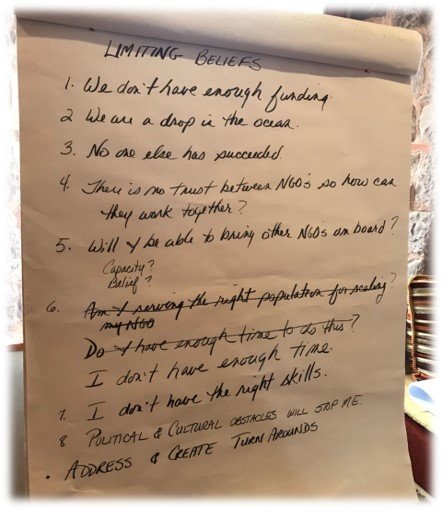 LIMITING BELIEFS
1. We don't have enough funding.
2 We are a drop in the ocean.
3. No one else has succeeded.
4. There is no trust between NGO's so how can
they work together?
5. Will I be able to bring other NGO's on board?
Capacity?
Belief?
6. Am I serving the right population for scaling?
my NGO
Do I have enough time to do this?
I don't have enough time.
7. I don't have the right skills.
8 POLITICAL & CULTURAL OBSTACLES WILL STOP ME.
• ADDRESS & CREATE TURN AROUNDS